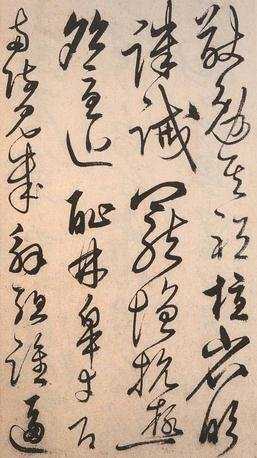 猷勉其祗植省躬
譏誡寵增抗極
殆辱近恥林皋幸即
兩疏見機解組誰逼